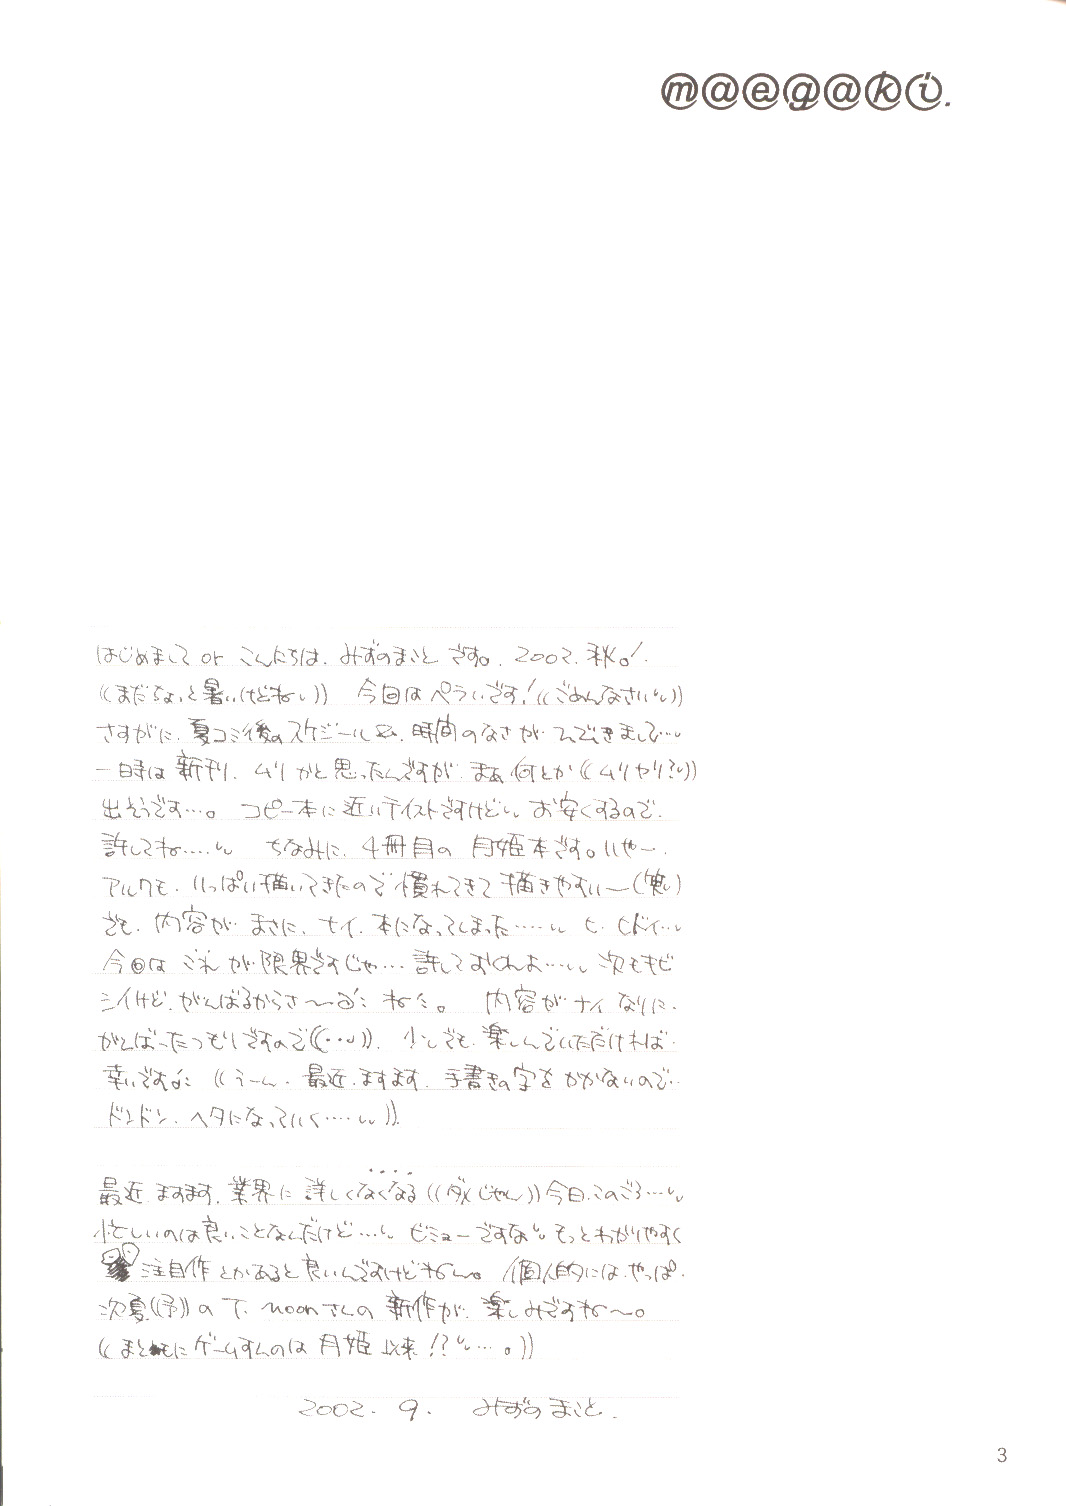 m@eg@ki.
はじめまして or こんにちは. みずのまこと です。2002. 秋。!.
((まだちょっと暑いけどねい)) 今回はペラいです!((ごめんなさいい))
さすがに. 夏コミ後のスケジール&. 時間のなさが. でてきまして…
一時は新刊. ムリかと思ったんですが. まぁ何とか((ムリヤリ?))
出そうです…。 コピー本に近いテイストですけど. お安くするので.
許してね…… ちなみに. 4冊目の 月姫本です。いやー.
アルクも. いっぱい描いてきたので慣れてきて描きやすいー(笑)
でも. 内容が. まさに. ナイ. 本になってしまった…… ヒ. ヒドイ…
今回は これ が限界ですじゃ… 許しておくれよ… 次もキビ
シイけど. がんばるからさ〜 ね。 内容が ナイ なりに.
がんばったつもりですので((…)). 少しでも. 楽しんでいただければ.
幸いです ((うーん. 最近. ますます. 手書きの字を かかないので..
ドンドン. ヘタになっていく……)).
最近. ますます. 業界に 詳しくなくなる((ダメじゃん))今日このごろ…
忙しいのは良いことなんだけど… ビミョーですな もっとわかりやすく
注目作とかあると良いんですけどねー。 個人的には. やっぱ.
次夏((予))の T. moonさんの 新作が. 楽しみですね〜。
((まともにゲームすんのは 月姫 以来!?…。))
2002. 9. みずの まこと.
3